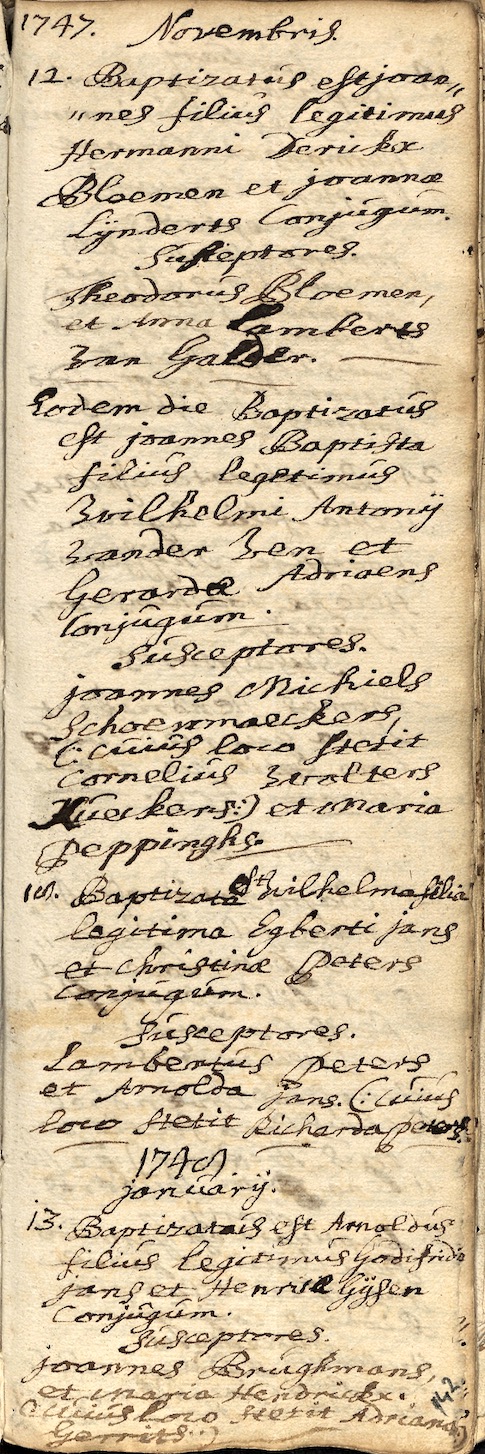 1747. Novembris.
12. Baptizatus est joan„
„nes filius legitimus
Hermanni Derickx
Bloemen et joannæ
Lijnderts Conjugum.
Susceptores.
Theodorus Bloemen,
et Anna Lamberts
Van Galder.
Eodem die Baptizatus
est joannes Baptista
filius legitimus
Wilhelmi Antonij
Vander Ven et
Gerardæ Adriaens
Conjugum.
Susceptores.
joannes Michiels
Schoenmaeckers,
(: Cuius loco stetit
Cornelius Wolters
Kueckers:) et Maria
Peppinghs.
18. Baptizata est Wilhelma filia
legitima Egberti jans
et Christinæ Peters
Conjugum.
Susceptores.
Lambertus Peters
et Arnolda jans. (: Cuius
loco stetit Richarda Peters:)
1748
januarij.
13. Baptizatus est Arnoldus
filius legitimus Godifridi
jans et Henricæ Gijsen
Conjugum.
Susceptores.
joannes Brughmans,
et Maria Hendrickx.
(: Cuius loco stetit Adriana
Gerrits:)
142